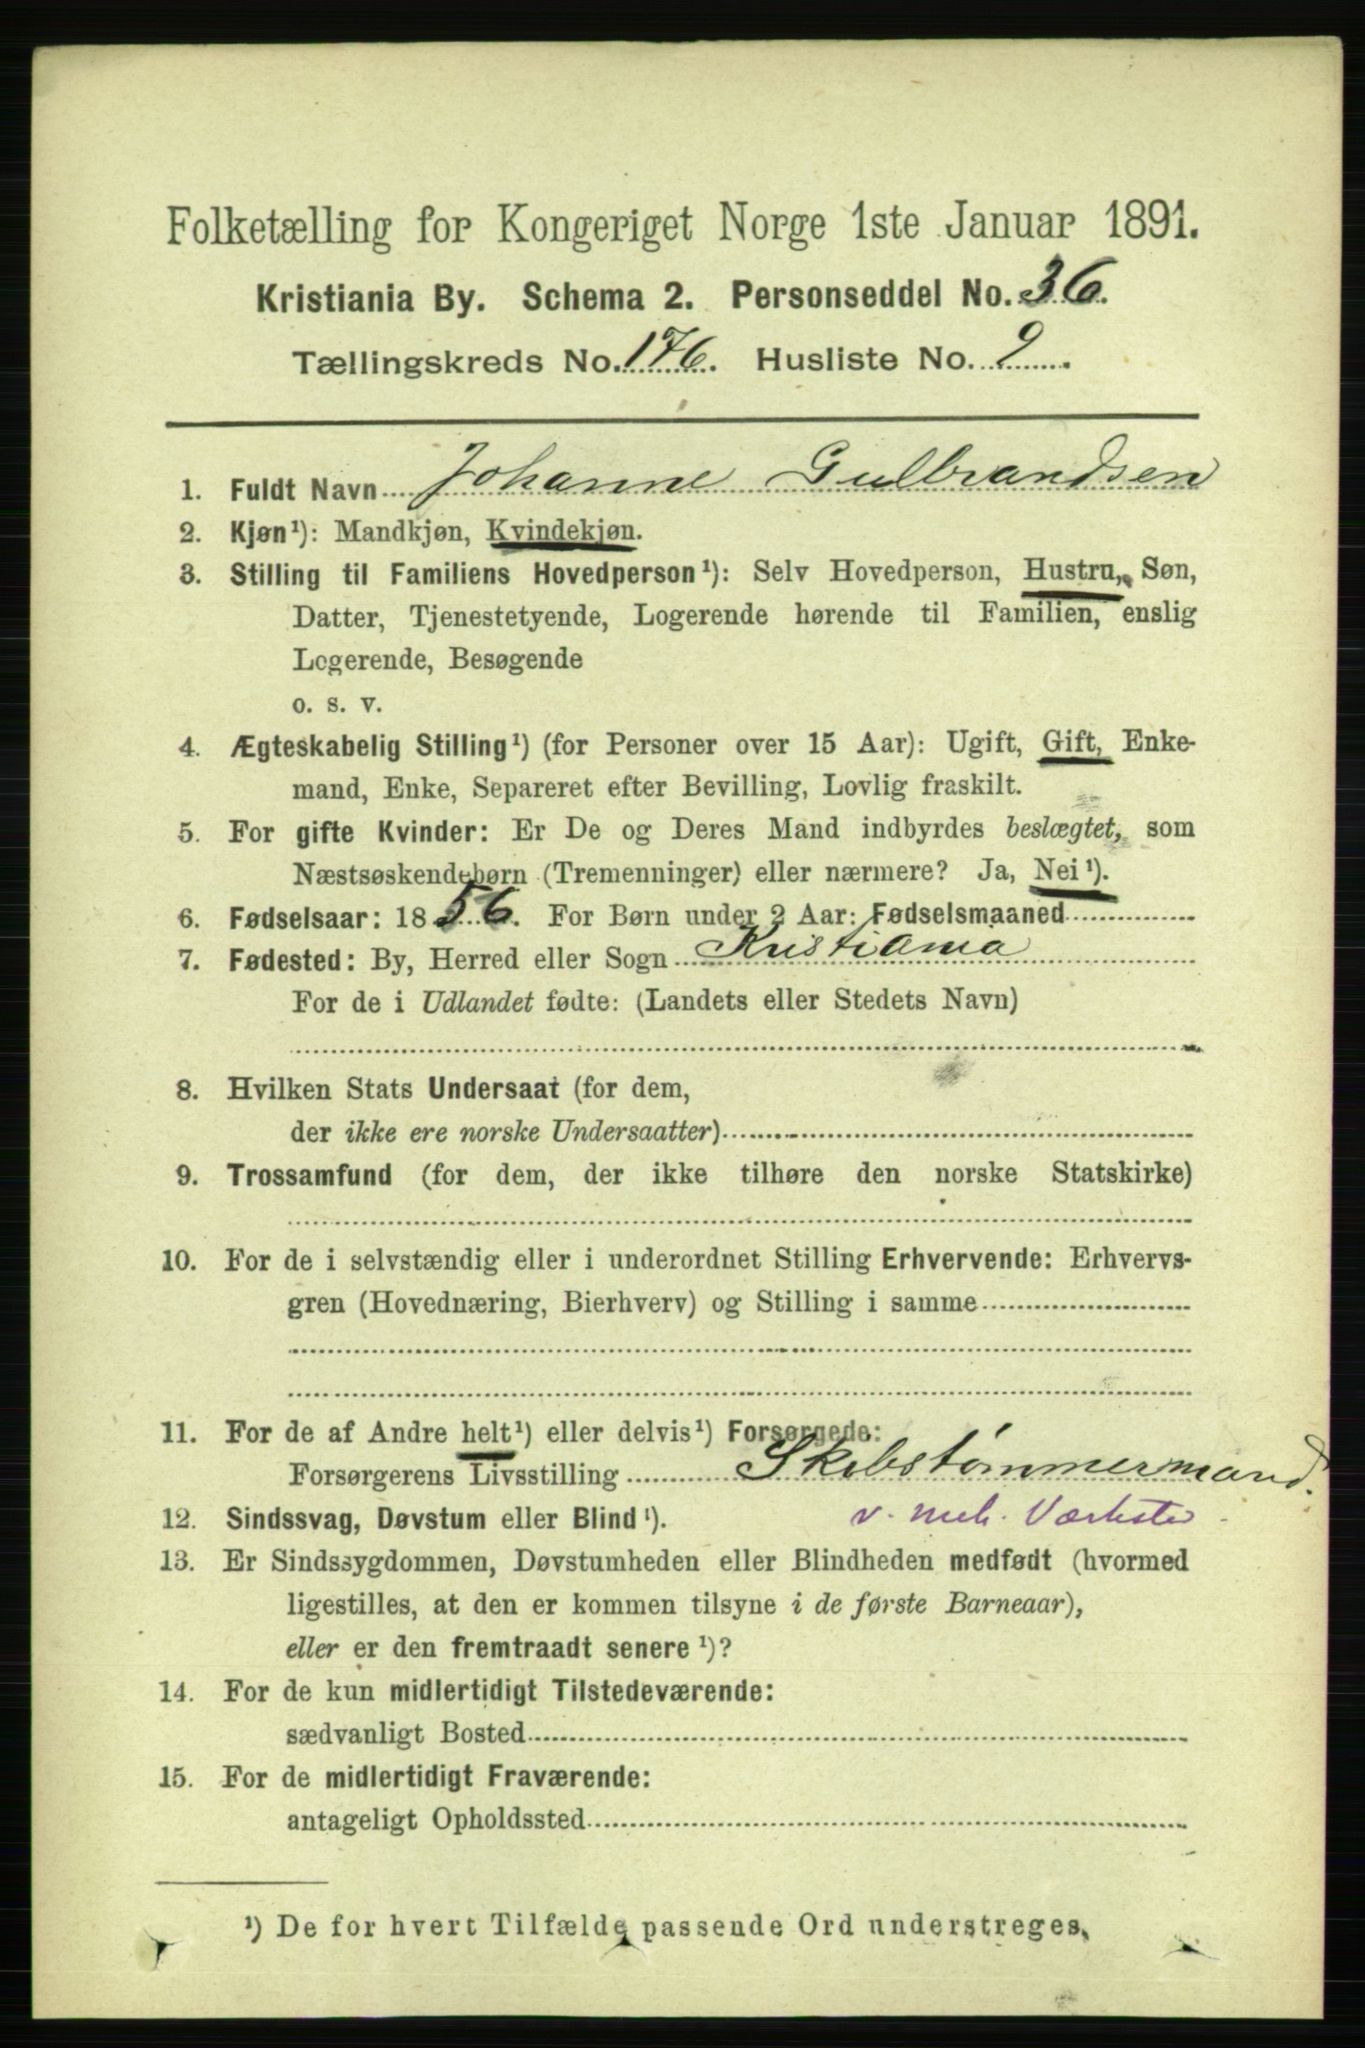 Folketælling for Kongeriget Norge 1ste Januar 1891.
Kristiania By. Schema 2. Personseddel No. 36.
Tællingskreds No. 176. Husliste No. 9.
1. Fuldt Navn Johanne Gulbrandsen
2. Kjøn¹): Mandkjøn, Kvindekjøn.
3. Stilling til Familiens Hovedperson¹): Selv Hovedperson, Hustru, Søn,
Datter, Tjenestetyende, Logerende hørende til Familien, enslig
Logerende, Besøgende
o. s. v.
4. Ægteskabelig Stilling¹) (for Personer over 15 Aar): Ugift, Gift, Enke-
mand, Enke, Separeret efter Bevilling, Lovlig fraskilt.
5. For gifte Kvinder: Er De og Deres Mand indbyrdes beslægtet, som
Næstsøskendebørn (Tremenninger) eller nærmere? Ja, Nei¹).
6. Fødselsaar: 1856. For Børn under 2 Aar: Fødselsmaaned
7. Fødested: By, Herred eller Sogn Kristiania
For de i Udlandet fødte: (Landets eller Stedets Navn)
8. Hvilken Stats Undersaat (for dem,
der ikke ere norske Undersaatter)
9. Trossamfund (for dem, der ikke tilhøre den norske Statskirke)
10. For de i selvstændig eller i underordnet Stilling Erhvervende: Erhvervs-
gren (Hovednæring, Bierhverv) og Stilling i samme
11. For de af Andre helt¹) eller delvis¹) Forsørgede:
Forsørgerens Livsstilling Skibstømmermand.
12. Sindssvag, Døvstum eller Blind¹). v. mek. Værksted
13. Er Sindssygdommen, Døvstumheden eller Blindheden medfødt (hvormed
ligestilles, at den er kommen tilsyne i de første Barneaar),
eller er den fremtraadt senere¹)?
14. For de kun midlertidigt Tilstedeværende:
sædvanligt Bosted
15. For de midlertidigt Fraværende:
antageligt Opholdssted
¹) De for hvert Tilfælde passende Ord understreges.